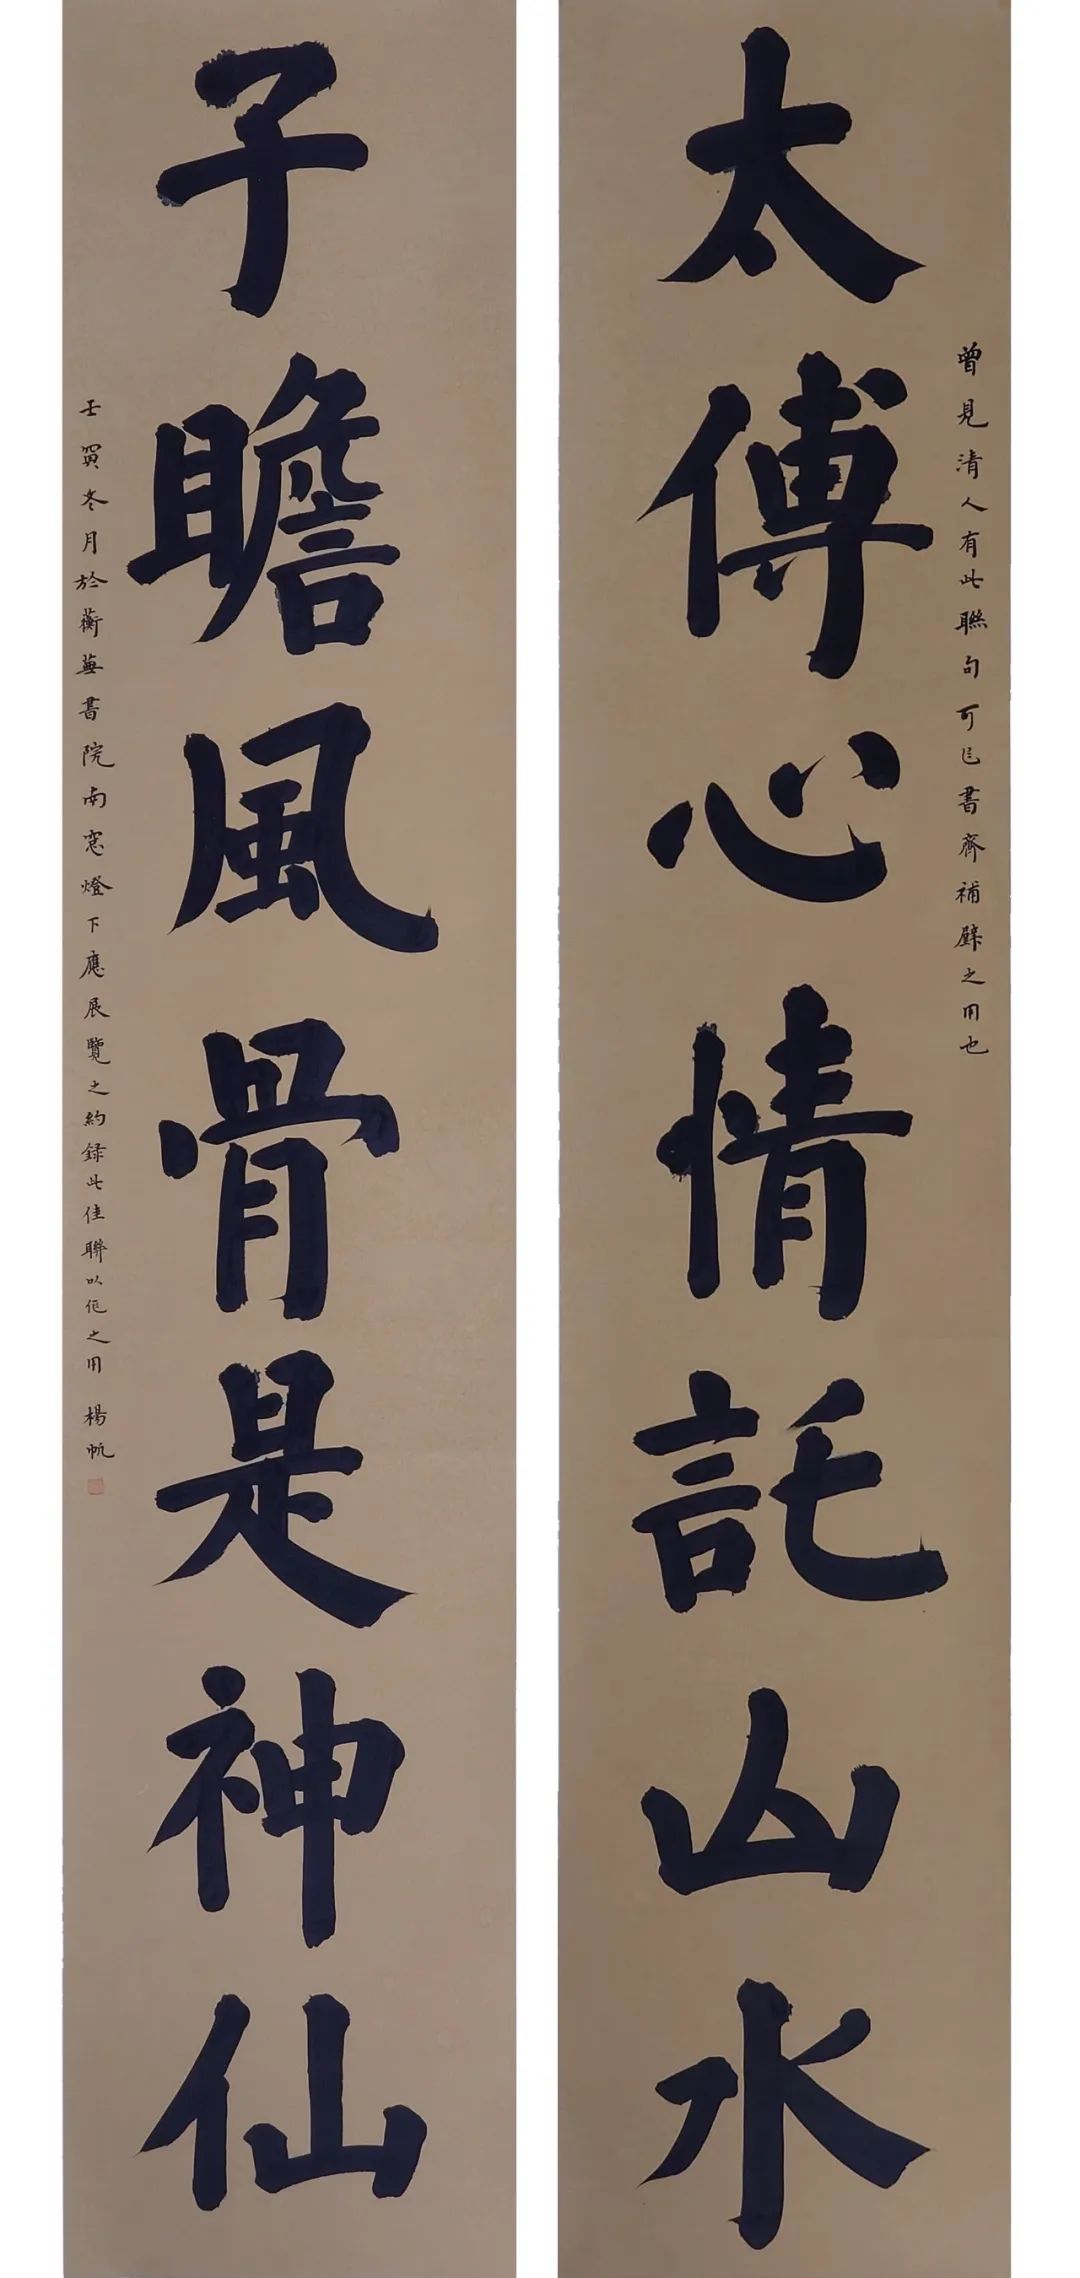 太傅心情託山水
曾見清人有此聯句可㠯書齋補壁之用也
子瞻風骨是神仙
壬寅冬月於蘅蕪書院南窓燈下應展覽之約録此佳聯以應之用 楊帆